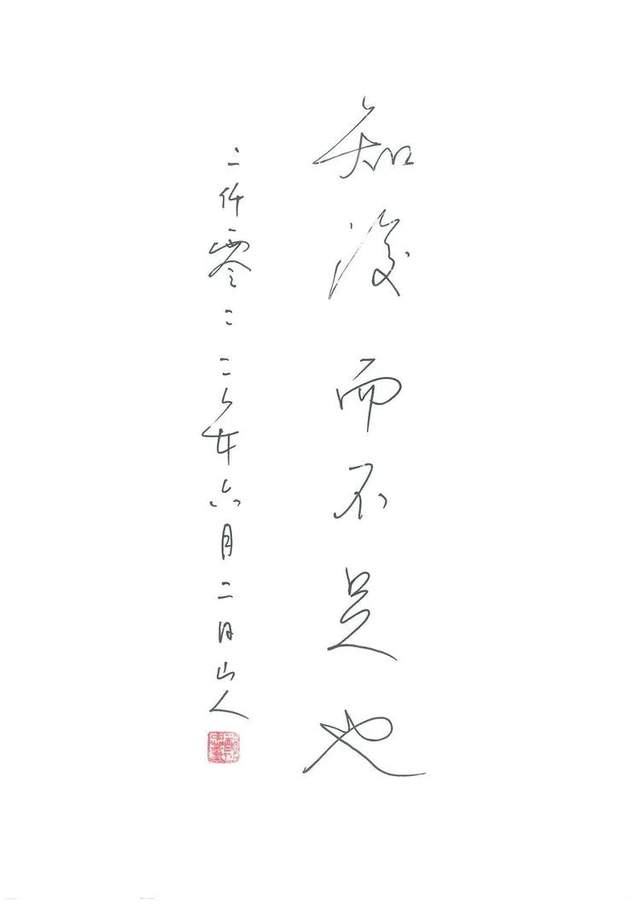 知後而不足也
二仟零二二年六月二日山人